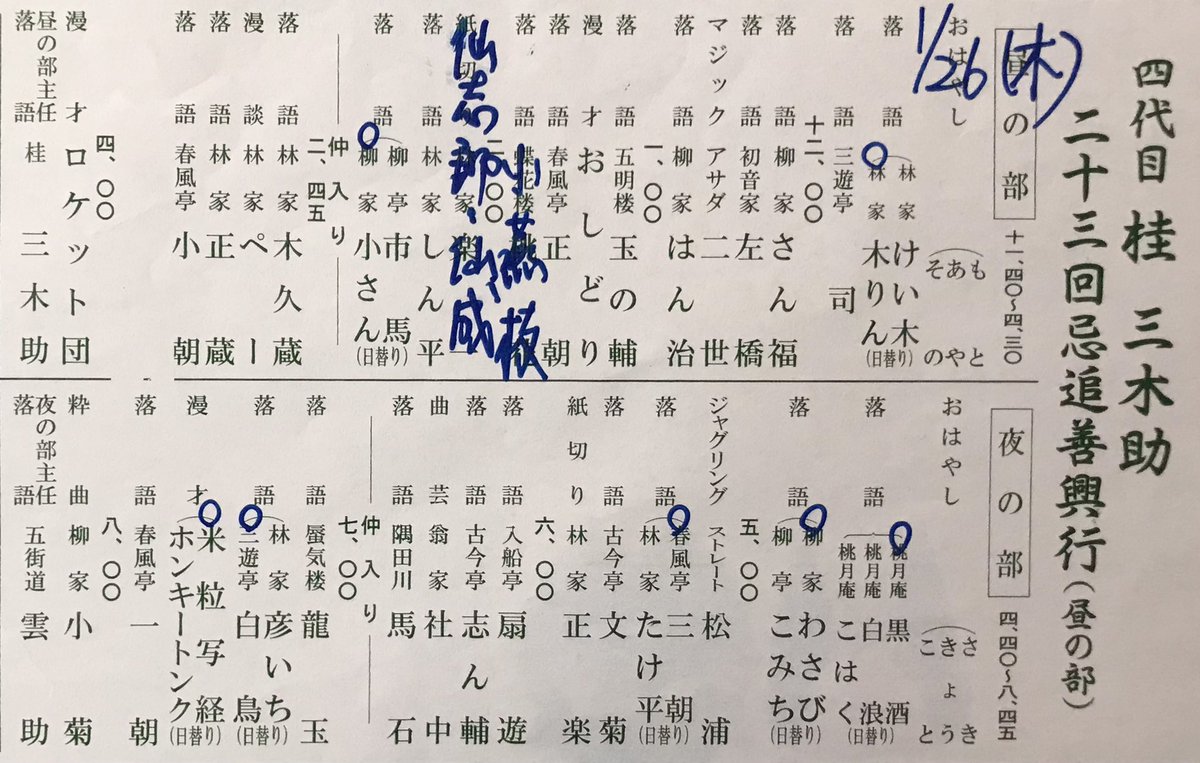 四代目 桂 三木助
二十三回忌追善興行(昼の部)
1/26(木)
昼の部 十一、四〇~四、三〇
おはやし もと
あや
その
落語 林家 けい木
林家 木りん(日替り)
落語 三遊亭 司
十二、〇〇
落語 柳家 さん福
落語 初音家 左橋
マジック アサダ二世
落語 柳家 はん治
一、〇〇
落語 五明楼 玉の輔
漫才 おしどり
落語 春風亭 正朝
落語 蝶花楼
小燕枝
二、〇〇
紙切り 楽一
仙志郎、仙成
落語 林家 しん平
落語 柳亭 市馬
柳家 小さん(日替り)
仲入り
二、四五
落語 林家 木久蔵
漫談 林家 ペー
落語 林家 正蔵
落語 春風亭 小朝
四、〇〇
漫才 ロケット団
昼の部主任
落語 桂 三木助
夜の部 四、四〇~八、四五
おはやし さき
きょう
こと
落語 桃月庵 黒酒
桃月庵 白浪
桃月庵 こはく(日替り)
落語 柳家 わさび
柳亭 こみち(日替り)
五、〇〇
ジャグリング ストレート松浦
落語 春風亭 三朝
林家 たけ平(日替り)
落語 古今亭 文菊
紙切り 林家 正楽
六、〇〇
落語 入船亭 扇遊
落語 古今亭 志ん輔
曲芸 翁家 社中
落語 隅田川 馬石
仲入り
七、〇〇
落語 蜃気楼 龍玉
落語 林家 彦いち
三遊亭 白鳥(日替り)
漫才 米粒写経
ホンキートンク(日替り)
落語 春風亭 一朝
八、〇〇
粋曲 柳家 小菊
夜の部主任
落語 五街道 雲助